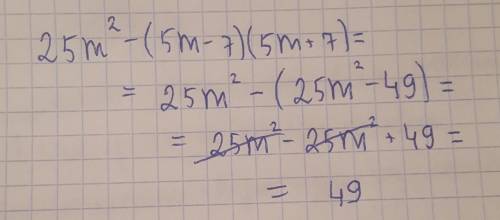 25m² - (5m - 7)(5m + 7) =
= 25m² - (25m² - 49) =
= 25m² - 25m² + 49 =
= 49